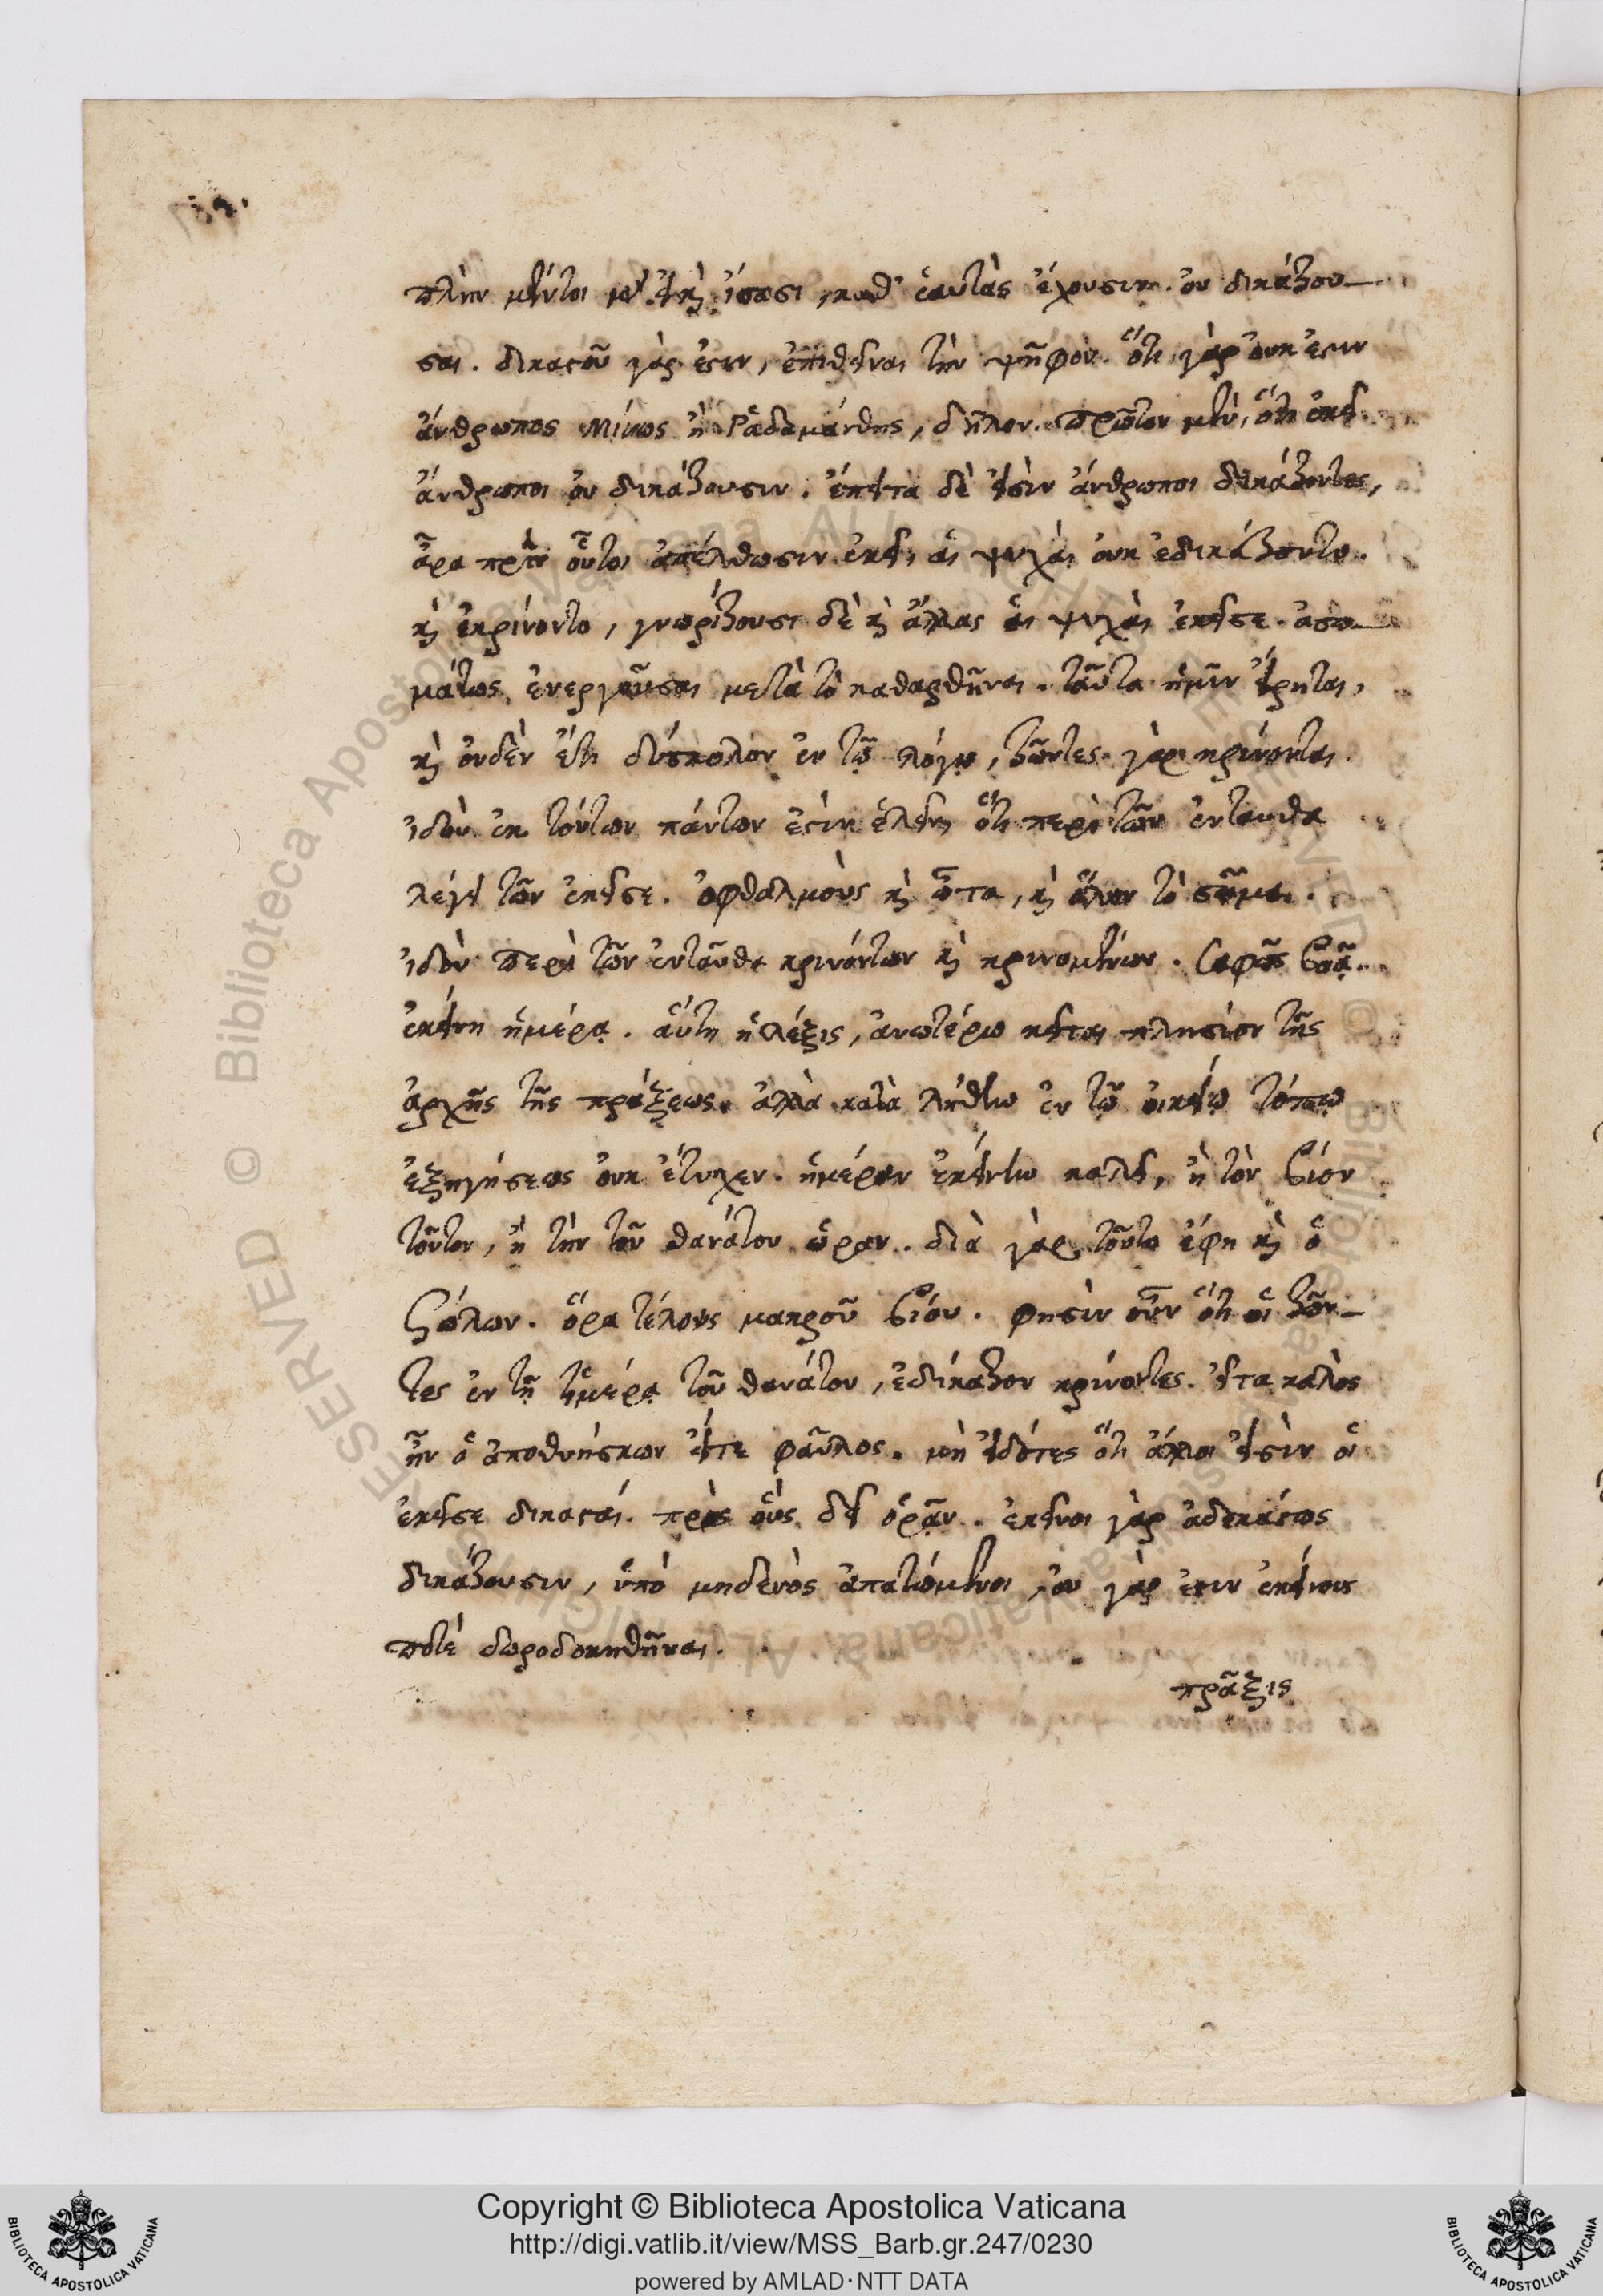 πλὴν μέντοι εἰ καὶ ἴσασι καθ' ἑαυτὰς ἔχουσιν. οὐ δικάζου—
σαι. δικαστοῦ γάρ ἐστιν, ἐπιθεῖναι τὴν ψῆφον. ὅτι γὰρ οὐκ ἔστιν
ἄνθρωπος Μίνως ἢ Ῥαδαμάνθης, δῆλον. πρῶτον μὲν, ὅτι ἐκεῖ
ἄνθρωποι οὐ δικάζουσιν. ἔπειτα δὲ εἰσὶν ἄνθρωποι δικάζοντες,
ἆρα πρὶν οὗτοι ἀπέλθωσιν ἐκεῖ, αἱ ψυχαὶ οὐκ ἐδικάζοντο.
καὶ ἐκρίνοντο, γνωρίζουσι δὲ καὶ ἄλλας αἱ ψυχαὶ ἐκεῖσε. ἀσω—
μάτως ἐνεργοῦσαι μετὰ τὸ καθαρθῆναι. ταῦτα ἡμῖν εἴρηται,
καὶ οὐδὲν ἔτι δύσκολον ἐν τῷ λόγῳ, ζῶντες γὰρ κρίνονται.
ἰδοὺ ἐκ τούτων πάντων ἐστὶν ἑλεῖν ὅτι περὶ τῶν ἐνταυθα
λέγει τῶν ἐκεῖσε. ὀφθαλμοὺς καὶ ὦτα, καὶ ὅλον τὸ σῶμα.
ἰδοὺ περὶ τῶν ἐνταῦθα κρινόντων καὶ κρινομένων. σαφῶς βοᾷ.
ἐκείνῃ ἡμέρᾳ. αὕτη ἡ λέξις, ἀνωτέρω κεῖται πλησίον τῆς
ἀρχῆς τῆς πράξεως. ἀλλὰ κατὰ λήθην ἐν τῷ οἰκείῳ τόπῳ
ἐξηγήσεως οὐκ ἔτυχεν. ἡμέραν ἐκείνην καλεῖ, ἢ τὸν βίον
τοῦτον, ἢ τὴν τοῦ θανάτου ὥραν. διὰ γὰρ τοῦτο ἔφη καὶ ὁ
Σόλων. ὅρα τέλους μακροῦ βίου. φησὶν οὖν ὅτι οἱ ζῶν—
τες ἐν τῇ ἡμέρᾳ τοῦ θανάτου, ἐδίκαζον κρίνοντες. εἴτα καλὸς
ἦν ὁ ἀποθνήσκων εἴτε φαῦλος. μὴ εἰδότες ὅτι ἄλλοι εἰσὶν οἱ
ἐκεῖσε δικασταί. πρὸς οὓς δεῖ ὁρᾶν. ἐκεῖνοι γὰρ ἀδεκάστως
δικάζουσιν, ὑπὸ μηδενὸς ἀπατώμενοι, οὐ γὰρ ἔστιν ἐκείνους
ποτέ δωροδοκηθῆναι.
πρᾶξις
Copyright © Biblioteca Apostolica Vaticana
http://digi.vatlib.it/view/MSS_Barb.gr.247/0230
powered by AMLAD·NTT DATA